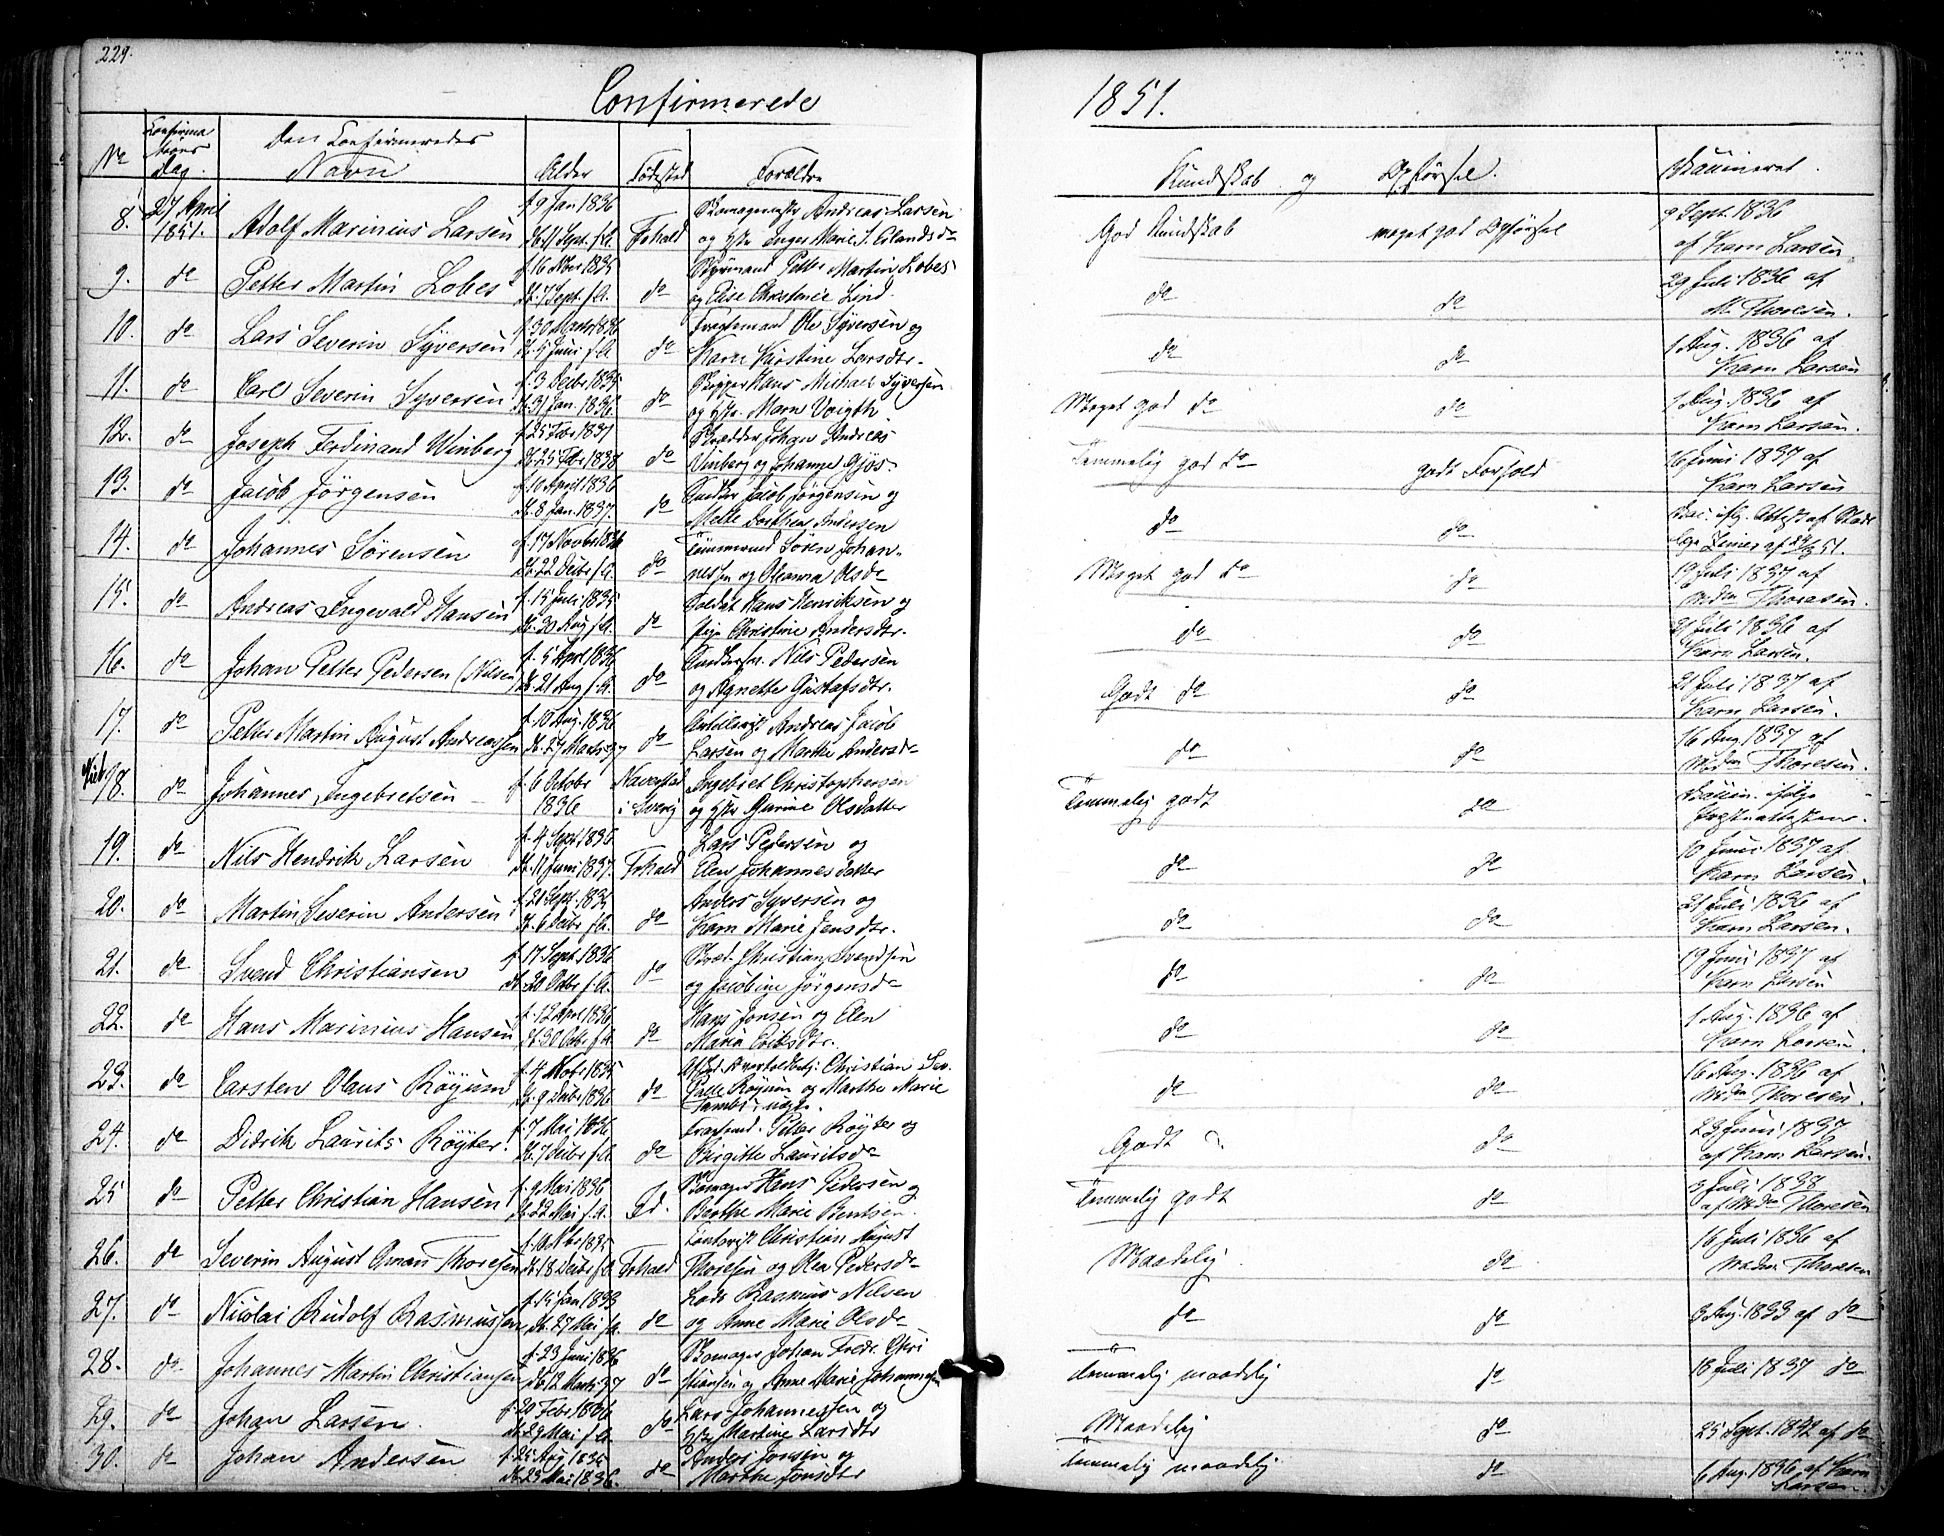 229.
Confirmerede 1851.
No Confirma
tions
dag. Den Confirmeredes
Navn Alder Fødested Forældre Kundskab og Opførsel. Vaccineret.
8. 27 April
1851. Adolf Marinius Larsen f. 9 Jan 1836
db. 11 Sept. s. A. Frhald Skomagermester Andreas Larsen
og Inger Marie S. Erlandsdr God Kundskab meget god Opførsel 9 Sept. 1836
af Karn Larsen
9. do Petter Martin Lobes f. 16 Nbr 1835
db. 7 Sept. s. A. do Styrmand Petter Martin Lobes
og Elise Christence Lind. do do 29 Juli 1836 af
M. Thoresen.
10. do Lars Severin Syversen f. 30 Marts 1836
db. 5 Juni s. A. do Ole Syversen og
Karn Kirstine Larsdtr. do do 1 Aug. 1836 af
Karn Larsen
11. do Carl Severin Syversen f. 3 Decbr 1835
db. 31 Jan. 1836. do Skipper Hans Michael Syversen
og Maren Voigth Meget god do do 1 Aug. 1836 af
Karn Larsen.
12. do Joseph Ferdinand Winberg f. 25 Febr 1837
db. 25 Febr 1838 do Skrædder Johan Andreas
Vinberg og Johanne Gjøs. Temmelig god do godt Forhold 26 Juni 1837 af
Karn Larsen
13. do Jacob Jørgensen f. 10 April 1836
db. 8 Jan. 1837. do Jacob Jørgensen og
Mette Dorthea Andersen do do Vac. iflg. Attest af
af 51.
14. do Johannes Sørensen f. 17 Novbr 1836
db. 22 Decbr s. A. do Tømmermd Søren Johan-
nessen og Oleanna Olsdr Meget god do do 19 Juli 1837 af
Mdm Thoresen.
15. do Andreas Ingevald Hansen f. 15 Juli 1835
db. 30 Aug s. A. do Soldat Hans Henriksen og
Pige Christine Andersdtr. do do 21 Juli 1836 af
Karn Larsen.
16. do Johan Petter Pedersen (Nilsen) f. 5 April 1836
db. 21 Aug s. A. do Nils Pedersen
og Agnette Gustafsdtr. Godt do do 21 Juli 1837 af
Karn Larsen.
17. do Petter Martin August Andreassen f. 10 Aug. 1836
db. 27 Marts 37 do Andreas Jacob
Larsen og Marthe Andersdr do do 16 Aug 1837 af
Mdm Thoresen.
18. do Johannes Ingebretsen f. 6 Octobr
1836 Naverstad
i Sverig Ingebret Christophersen
og Gurine Olsdatter Temmelig godt do Vaccin. ifølge
Præsteattesten.
19. do Nils Hendrik Larsen f. 4 Sept 1836
db. 11 Juni 1837. Frhald Lars Pedersen og
Elen Johannesdatter do do 10 Juni 1837 af
Karn Larsen.
20. do Martin Severin Andersen f. 20 Sept. 1835
db. 6 Decbr s. A. do Anders Syversen og
Karn Marie Jensdtr. do do 21 Juli 1836 af
Karn Larsen.
21. do Svend Christiansen f. 17 Sept 1836
db. 20 Octbr s. A. do Christian Svendsen
og Jacobine Jørgensdr do do 19 Juni 1837 af
Karn Larsen
22. do Hans Marinius Hansen f. 12 April 1836
db. 30 Octbr s. A. do Hans Jonsen og Elen
Maria Eriksdtr. do do 1 Aug. 1836 af
Karn Larsen.
23. do Carsten Olaus Røyum f. 4 Nobr 1835
db. 9 Decbr 1836 do Christian Sev.
Palle Røyum og Marthe Marie
do do 16 Aug. 1836 af
Mdm Thoresen.
24. do Didrik Laurits Røyter. f. 7 Mai 1836
db. 7 Decbr s. A. do Petter Røyter og
Birgitte Lauritsdr Godt do 23 Juni 1837
af Karn Larsen.
25 do Petter Christian Hansen f. 9 Mai 1836
db. 22 Mai s. A. Id. Skomager Hans Pedersen og
Berthe Marie Bentsen. Temmelig godt do 3 Juli 1838
af Mdm Thoresen
26. do Severin August Thoresen
db. 18 Decbr s. A. Frhald Christian August
Thoresen og Olea Pedersdr Maadelig. do 16 Juli 1836 af
Mdm. Thoresen
27. do Nicolai Rudolf Rasmussen f. 15 Jan 1833
db. 27 Mai s. A. do Lods Rasmus Nilsen
og Anne Marie Olsdr do do 3 Aug. 1833 af do
28. do Johannes Martin Christiansen f. 23 Juni 1836
db. 12 Marts 37 do Skomager Johan Fredr. Chri
stiansen og Anne Marie Johannesen temmelig maadelig do 18 Juli 1837 do
29. do Johan Larsen. f. 20 Febr 1836
db. 29 Mai s. A. do Lars Johannessen og
Martine Larsdtr Maadelig do 25 Sept. 1842 af do
30. do Johan Andersen f. 25 Aug 1835
db. 23 Mai 1836. do Anders Jonsen og
Marthe Jonsdtr Temmelig maadelig do 6 Aug. 1836 af Karn
Larsen.